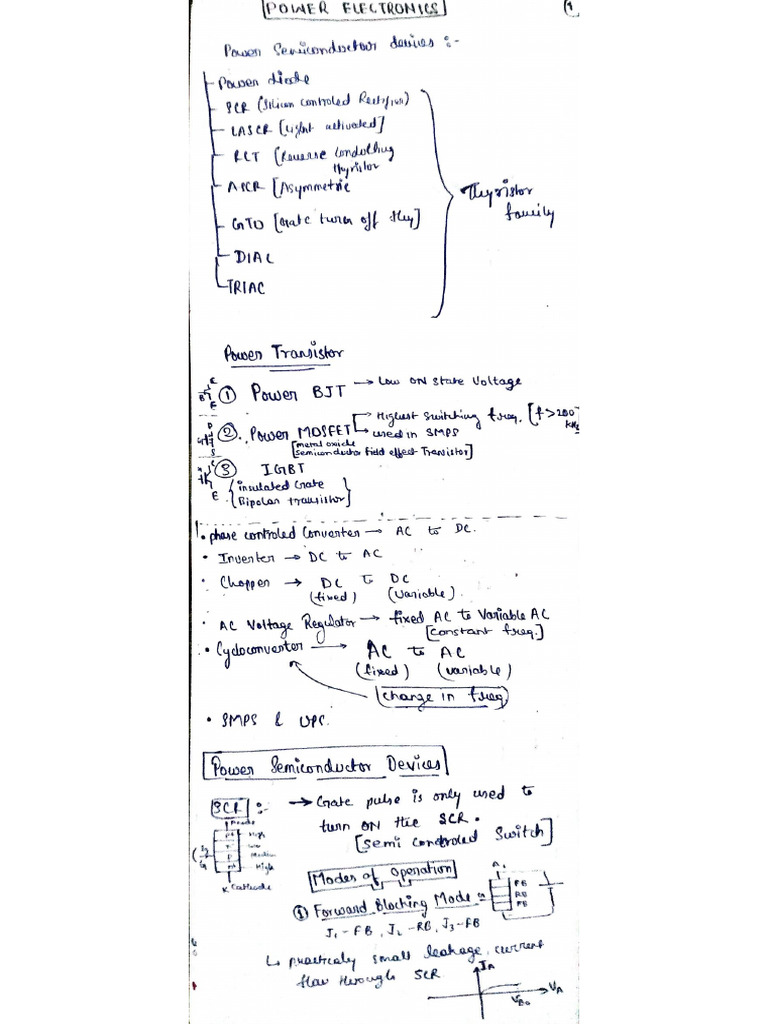 POWER ELECTRONICS
1
Power Semiconductour devices :-
Power diode
SCR (Silicon controled Rectifier)
LASCR [Light activated]
RCT (Reverse Conducting
thyristor
ASCR [Asymmetric
GTO [Gate turn off thy]
DIAC
TRIAC
Thyristor
family
Power Transistor
① Power BJT → Low ON state Voltage
② Power MOSFET → Highest Switching freq. [f>200 kHz
→ used in SMPS
[metal oxide
Semiconductor field effect Transistor]
③ IGBT
{insulated Gate
Bipolar transistor}
B C E
D G S
C E
• phase controled Converter → AC to DC.
• Inverter → DC to AC
• Chopper → DC to DC
(fixed) (Variable).
• AC Voltage Regulator → fixed AC to Variable AC
[constant freq.]
• Cycloconverter → AC to AC
(fixed) (variable)
change in freq
• SMPS & UPS.
Power Semiconductor Devices
SCR :- → Gate pulse is only used to
turn ON the SCR.
[Semi controled Switch]
Anode
High
Low
Medium
High
K Cathode
Modes of Operation
① Forward Blocking Mode :-
A
FB
RB
FB
J₁-FB, J₂-RB, J₃-FB
↳ practicaly small leakage current
flow through SCR
IA
VB₀
VA